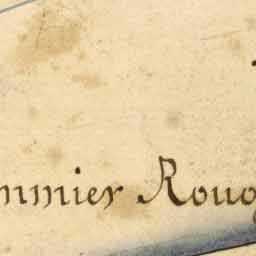 mmier Roug